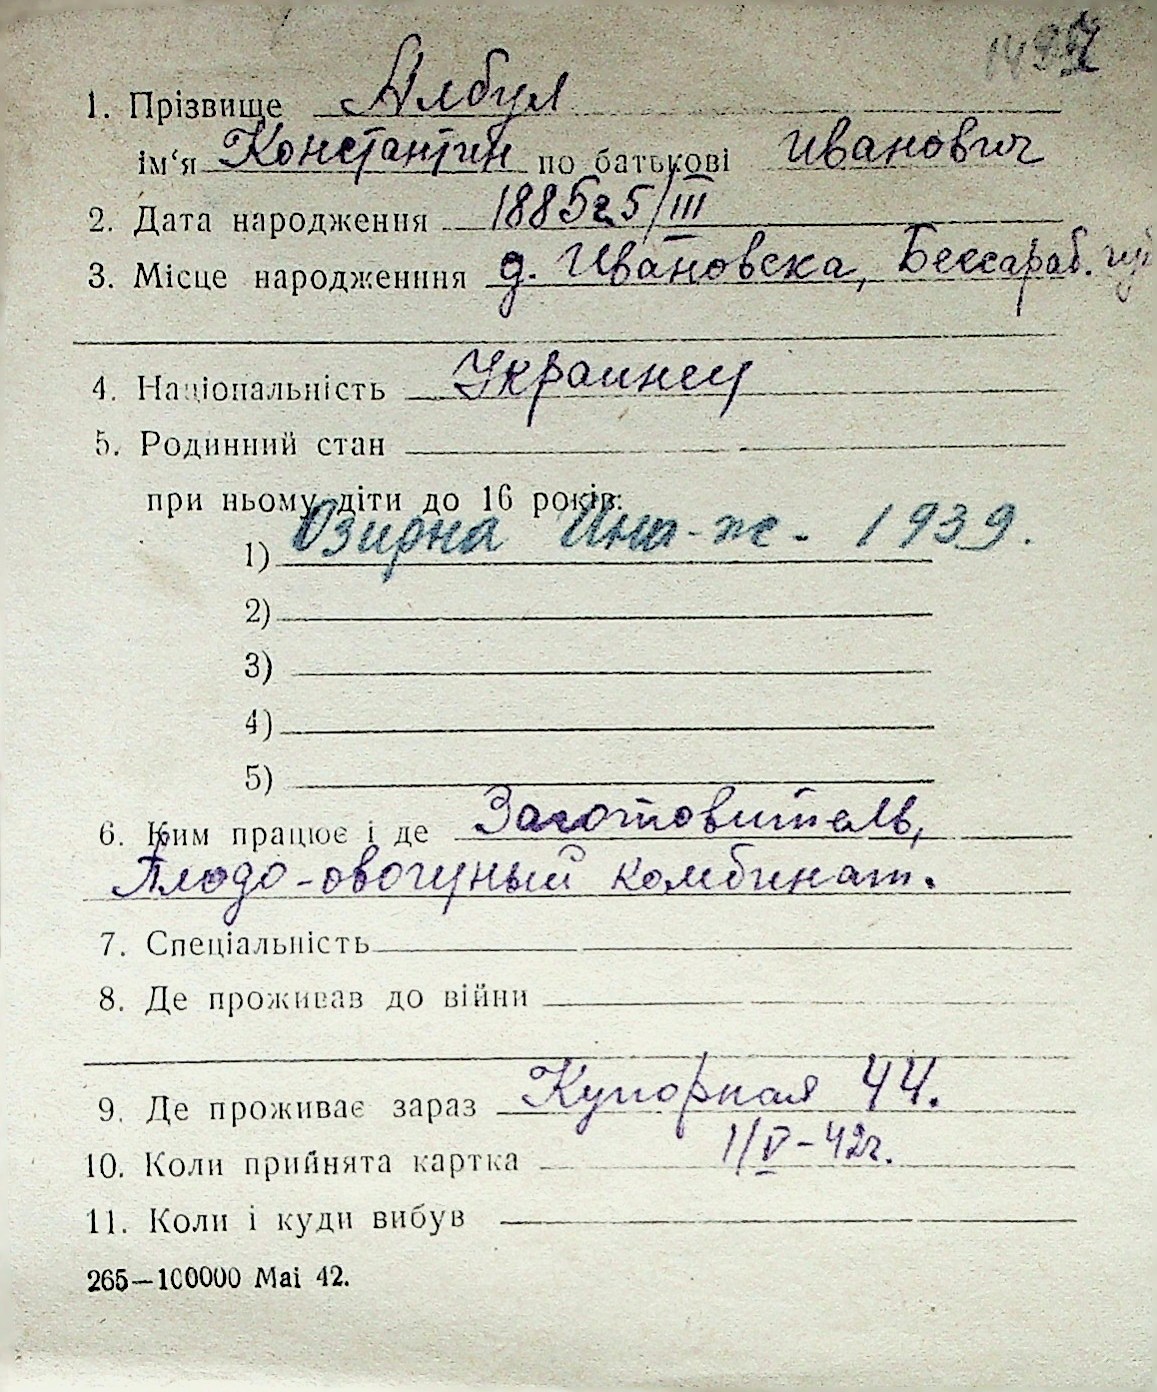 1. Прізвище Албул
ім'я Константин по батькові Иванович
2. Дата народження 1885г 5/III
3. Місце народженння д. Ивановска, Бессараб. губ
4. Національність Украинец
5. Родинний стан
при ньому діти до 16 років:
1) 1939.
2)
3)
4)
5)
6. Ким працює і де Заготовитель,
Плодо-овочный комбинат.
7. Спеціальність
8. Де проживав до війни
9. Де проживає зараз Купорная 44.
10. Коли прийнята картка 1/V-42г.
11. Коли і куди вибув
265—100000 Mai 42.